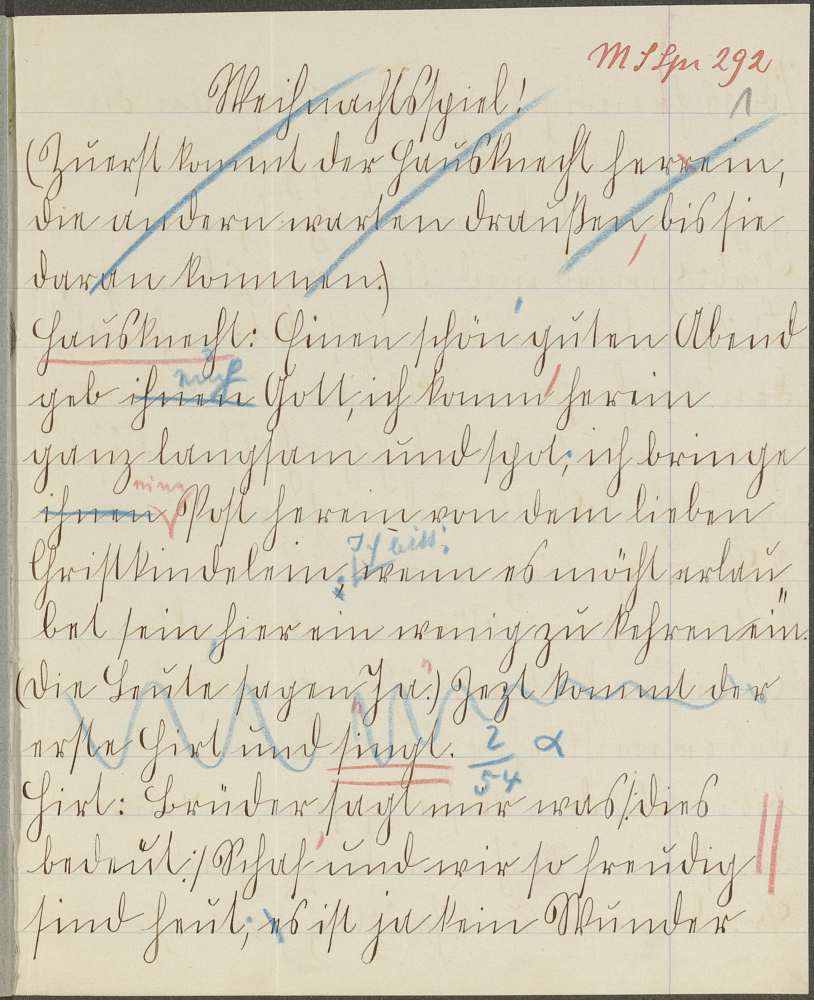 M S Spr 292
1
Weihnachtsspiel!
(Zuerst kommt der Hausknecht herrein,
die andern warten draußen bis sie
daran kommen.)
Hausknecht: Einen schön guten Abend
euch
geb ihnen Gott, ich komm herein
ganz langsam und spot, ich bringe
eine
ihnen Post herein von dem lieben
Ich bitt:
Christkindelein, wenn es möcht erlau
bet sein, hier ein wenig zu kehren ein.
(Die Leute sagen Ja.) Jezt kommt der
erste Hirt und singt. 2/54 α
Hirt: Brüder sagt mir was /: dies
bedeut :/ Schaf und wir so freudig
sind heut; es ist ja kein Wunder